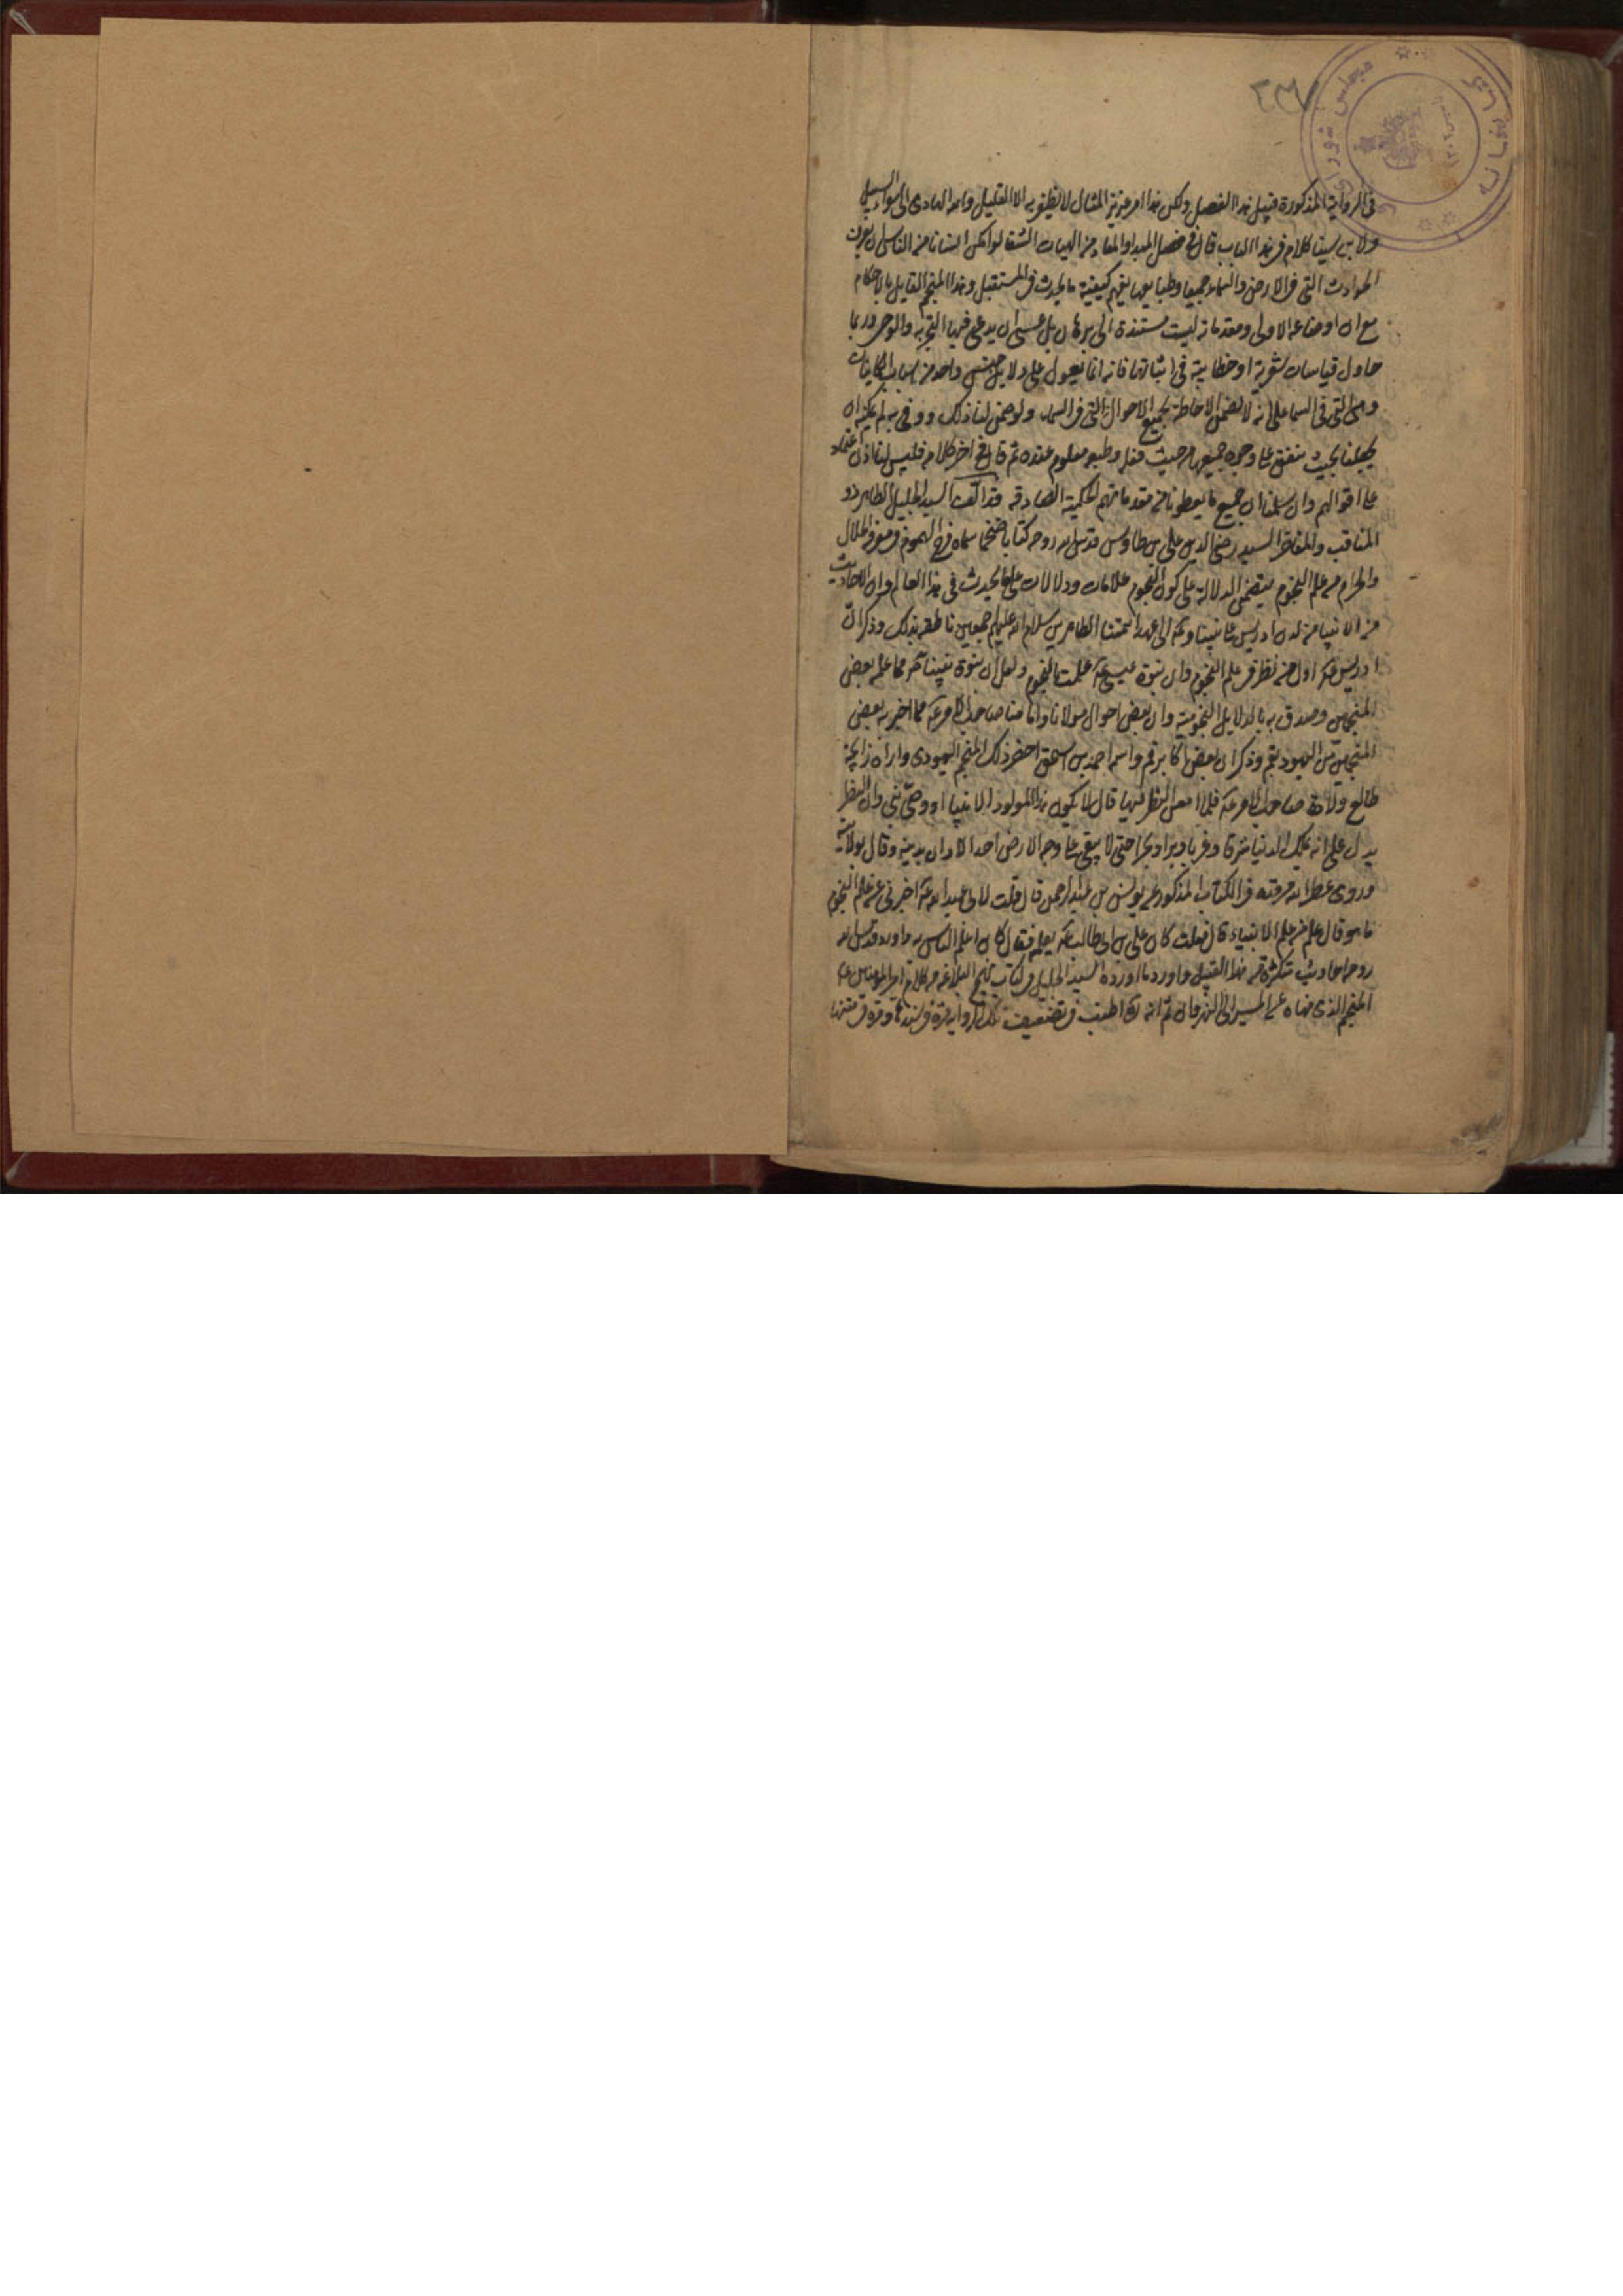 ٢٣٧
مجلس شورای ملی
كتابخانه
١٣٠٢
فى الرواية المذكورة قبيل هذا الفصل ولكن هذا امر عزيز المثال لا يظفر به الا القليل والله الهادى الى سواء السبيل
ولابن سينا كلام فى هذا الباب قال فى فصل المبدا والمعاد من الهيات الشفا لو امكن انسانا من الناس ان يعرف
الحوادث التى فى الارض والسماء جميعا وطبايعها لفهم كيفية ما يحدث فى المستقبل وهذا المنجم القايل بالاحكام
مع ان اوضاعه الاولى ومقدماته ليست مستندة الى برهان بل عسى ان يدعى فيها التجربه والوحى وربما
حاول قياسات شعرية او خطابية فى اثباتها فانه انما يعول على دلايل جنس واحد من اسباب الكاينات
وهى التى فى السما على انه لا يضمن الاحاطة بجميع الاحوال التى فى السما ولو ضمن لنا ذلك ووفى به لم يمكنه ان
يجعلنا بحيث نقف على وجود جميعها من حيث فعله وطبعه معلوم عنده ثم قال فى اخر كلامه فليس لنا اذن اعتماد
على اقوالهم وان سلمنا ان جميع ما يعطونا من مقدماتهم الحكمية الصادقه وقد الف السيد الجليل الطاهر ذو
المناقب والمفاخر السيد رضى الدين على بن طاوس قدس الله روحه كتابا ضخما سماه فرج المهموم فى معرفة الحلال
والحرام من علم النجوم يتضمن الدلالة على كون النجوم علامات ودلالات على ما يحدث فى هذا العالم وان الاحاديث
من الانبيا من لدن ادريس على نبينا وعليه الى عهد ائمتنا الطاهرين سلام الله عليهم اجمعين ناطقه بذلك وذكر ان
ادريس اول من نظر فى علم النجوم وان نبوة عيسى علمت بالنجوم ونقل ان نبوة نبينا مما علم بعض
المنجمين وصدق به بالدلايل النجومية وان بعض احوال مولانا وامامنا صاحب الامر مما اخبر به بعض
المنجمين من اليهود بقم وذكر ان بعض اكابر قم واسمه احمد بن اسحق احضر ذلك المنجم اليهودى واراه زايجة
طالع ولادة صاحب الامر فلما امعن النظر فيها قال لا يكون هذا المولود الا نبيا او وصى نبى وان النظر
يدل على انه يملك الدنيا شرقا وغربا وبرا وبحرا حتى لا يبقى على وجه الارض احد الا دان بدينه وقال بولايته
وروى عطر الله مرقده فى الكتاب المذكور عن يونس بن عبد الرحمن قال قلت لابى عبد الله اخبرنى عن علم النجوم
ما هو قال علم من علم الانبياء قال فقلت كان على بن ابى طالب يعلمه فقال كان اعلم الناس به واورد قدس الله
روحه احاديث متكثرة من هذا القبيل واورد ما اورده السيد الجليل فى كتاب نهج البلاغه من كلام امير المومنين
المنجم الذى نهاه عن المسير الى النهروان ثم انه اطنب فى تضعيف تلك الرواية مرة فى سندها ومرة فى متنها